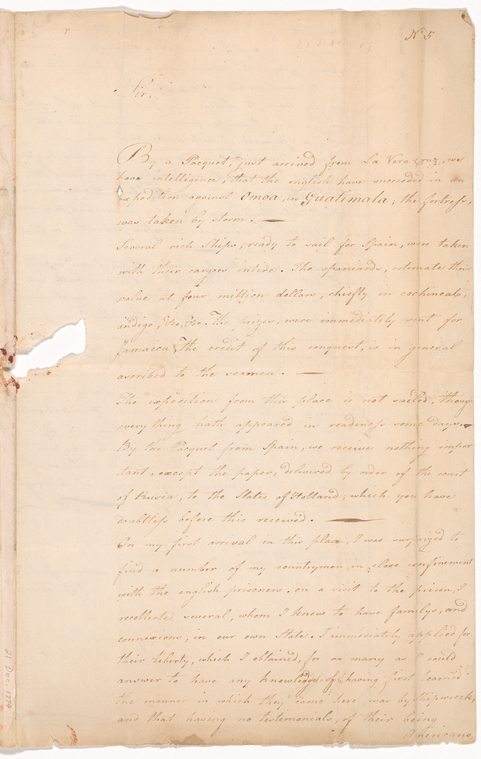 No 5
Sir.
By a Pacquet, just arrived from La Vera Cruz, we
have intelligence, that the english have succeeded in an
expedition against Omoa, in Guatimala, the fortress,
was taken by storm. —
Several rich Ships, ready to sail for Spain, were taken
with their cargoes intire. The spaniards, estimate their
value at four million dollars, chiefly in cochineal,
indigo, &c, &c. The prizes, were immediately sent for
Jamaica, & the credit of this conquest, is in general
ascribed to the seamen. —
The expedition from this place is not sailed, though
every thing hath appeared in readiness some days.
By the Pacquet from Spain, we receive nothing impor
tant, except the paper, delivered by order of the court
of Russia, to the States of Holland; which you have
doubtless before this received. —
On my first arrival in this place, I was surprized to
find a number of my countrymen, in close confinement
with the english prisoners. on a visit to the prison, I
recollected several, whom I knew to have familys, and
connexions, in our own State. I immediately applied for
their liberty, which I obtained, for as many as I could
answer to have any knowledge of, having first learnd
the manner in which they came here was by shipwreck,
and that having no testimonials, of their being
Americans
21 Dec. 1779